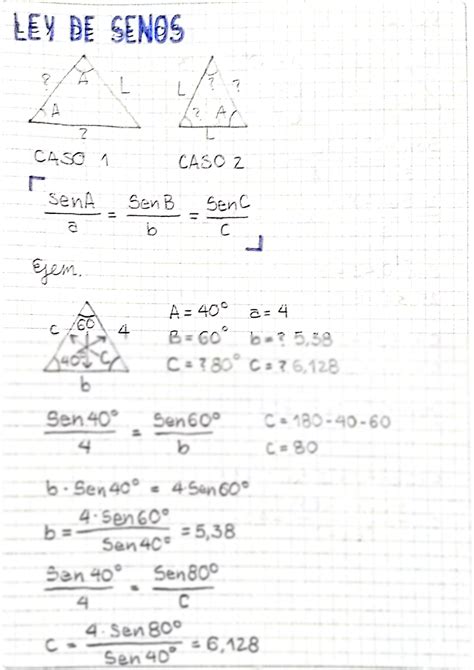 LEY DE SENOS
? A L L ? ?
A ? ? A
? L
CASO 1 CASO 2
SenA/a = SenB/b = SenC/c
Ejem.
A = 40° a = 4
c 60 4 B = 60° b = ? 5,38
40° C C = ? 80° C = ? 6,128
b
Sen40°/4 = Sen60°/b C = 180-40-60
C = 80
b · Sen40° = 4·Sen60°
b = 4·Sen60°/Sen40° = 5,38
San 40°/4 = Sen80°/C
C = 4·Sen80°/Sen40° = 6,128